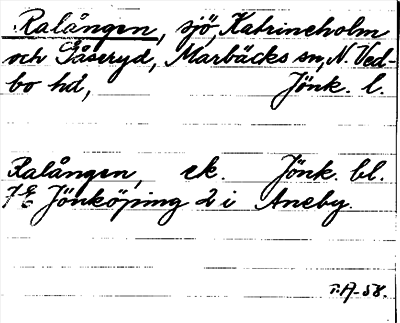 Ralången, sjö, Katrineholm
och Gåseryd, Marbäcks sn, N. Ved-
bo hd, Jönk. l.
Ralången, ek. Jönk. bl.
7E Jönköping 2 i Aneby.
r.A-58.